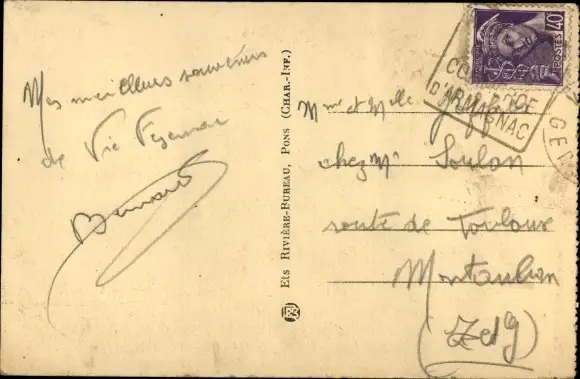 Mes meilleurs souvenirs
de Vic Fezensac
Bernard
Ets RIVIÈRE-BUREAU, PONS (CHAR.-INF.)
40
POSTES
D'ARMAGNAC
GERS
Mme et Melle
chez Mr Soulan
route de Toulouse
Montauban
(T et G)